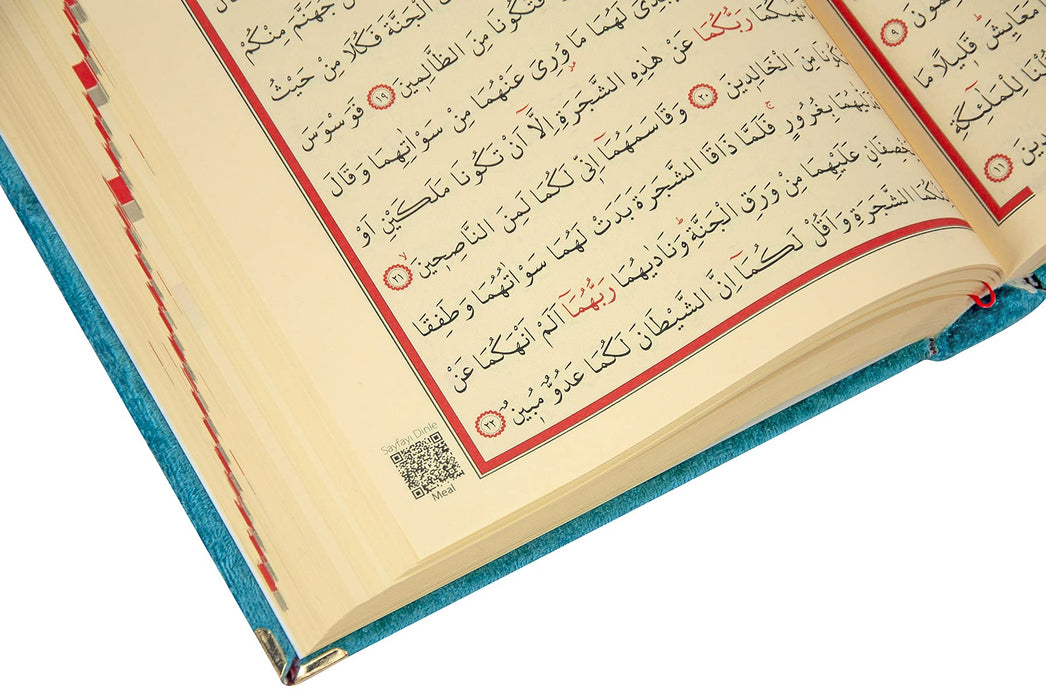 ٩
مَعَايِشَ قَلِيلًا مَا
لِلْمَلٰٓئِكَةِ
١١
جَهَنَّمَ مِنْكُمْ
الْجَنَّةَ فَكُلَا مِنْ حَيْثُ
فَتَكُونَا مِنَ الظَّالِمِينَ ١٩ فَوَسْوَسَ
لَهُمَا مَا وُرِيَ عَنْهُمَا مِنْ سَوْاٰتِهِمَا وَقَالَ
رَبُّكُمَا عَنْ هٰذِهِ الشَّجَرَةِ اِلَّٓا اَنْ تَكُونَا مَلَكَيْنِ اَوْ
مِنَ الْخَالِدِينَ ٢٠ وَقَاسَمَهُمَٓا اِنِّي لَكُمَا لَمِنَ النَّاصِحِينَ ٢١
بِغُرُورٍ فَلَمَّا ذَاقَا الشَّجَرَةَ بَدَتْ لَهُمَا سَوْاٰتُهُمَا وَطَفِقَا
عَلَيْهِمَا مِنْ وَرَقِ الْجَنَّةِ وَنَادٰيهُمَا رَبُّهُمَٓا اَلَمْ اَنْهَكُمَا عَنْ
الشَّجَرَةِ وَاَقُلْ لَكُمَٓا اِنَّ الشَّيْطَانَ لَكُمَا عَدُوٌّ مُبِينٌ ٢٢
Sayfayı Dinle
Meal